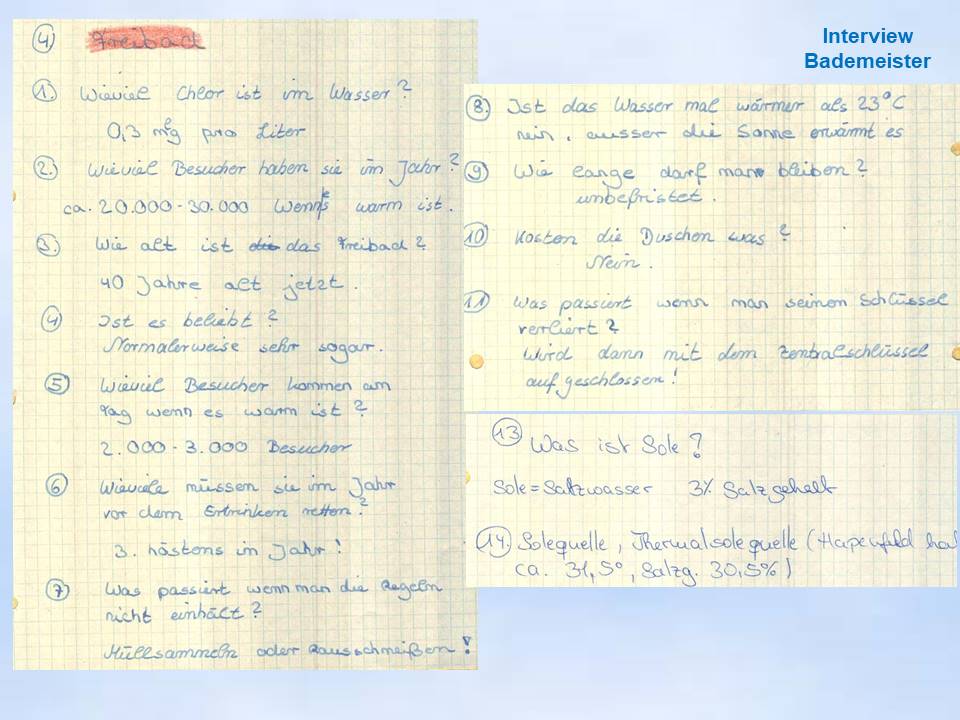 Interview
Bademeister
4) Freibad
1. Wieviel Chlor ist im Wasser?
0,3 mg pro Liter
2. Wieviel Besucher haben sie im Jahr?
ca. 20.000 - 30.000 Wenn's warm ist.
3. Wie alt ist das Freibad?
40 Jahre alt jetzt.
4 Ist es beliebt?
Normalerweise sehr sogar.
5 Wieviel Besucher kommen am
Tag wenn es warm ist?
2.000 - 3.000 Besucher
6 Wieviele müssen sie im Jahr
vor dem Ertrinken retten?
3. hästens im Jahr!
7 Was passiert wenn man die Regeln
nicht einhält?
Müllsammeln oder Rausschmeißen!
8. Ist das Wasser mal wärmer als 23°C
nein, ausser die Sonne erwärmt es
9 Wie lange darf man bleiben?
unbefristet.
10 Kosten die Duschen was?
Nein.
11 Was passiert wenn man seinen Schlüssel
verliert?
Wird dann mit dem Zentralschlüssel
aufgeschlossen!
13 Was ist Sole?
Sole = Salzwasser 3% Salzgehalt
14. Solequelle, Thermalsolequelle (Hapenfeld hat
ca. 31,5°, Salzg. 30,5%)